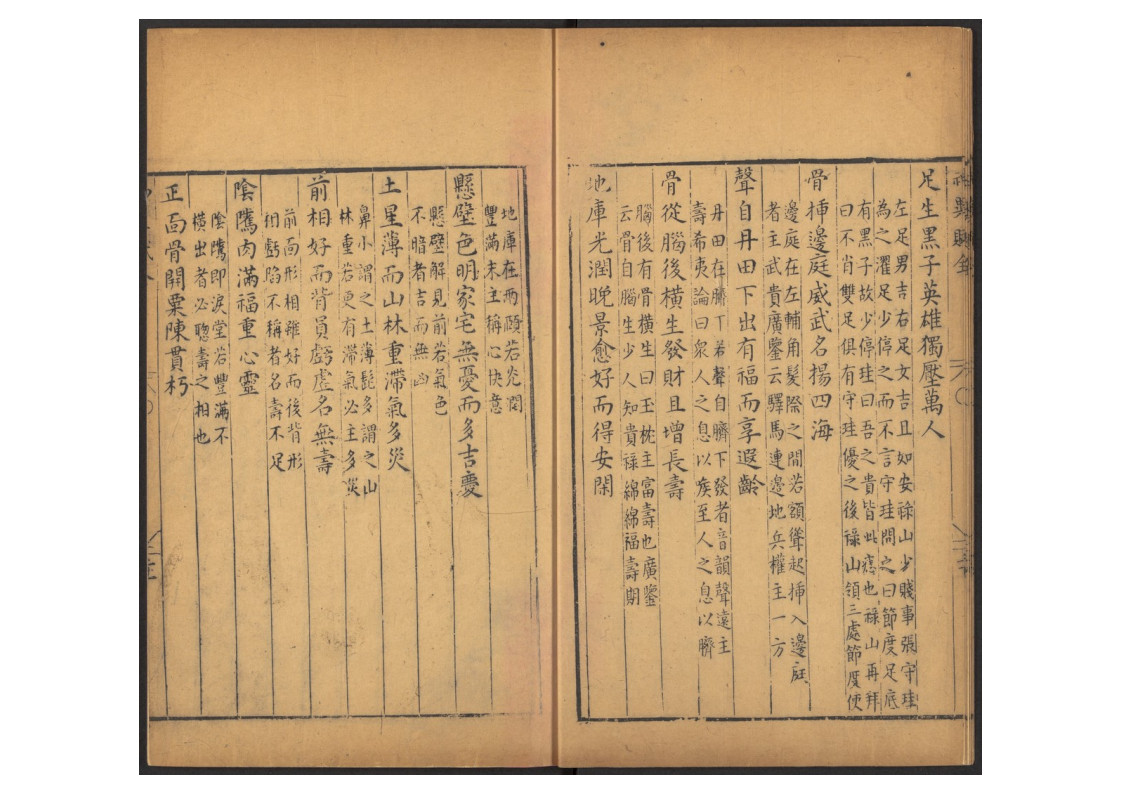 足生黑子英雄獨壓萬人
左足男吉右足女吉且如安祿山少賤事張守珪
為之濯足少停之而不言守珪問之曰節度足底
有黑子故少停珪曰吾之貴皆此痣也祿山再拜
曰不肖雙足俱有守珪優之後祿山領三處節度使
骨揷邊庭威武名揚四海
邊庭在左輔角髮際之間若額聳起揷入邊庭
者主武貴廣鑒云驛馬連邊地兵權主一方
聲自丹田下出有福而享遐齡
丹田在臍下若聲自臍下發者音韻聲遠主
壽希夷論曰衆人之息以喉至人之息以臍
骨從腦後橫生發財且增長壽
腦後有骨橫生曰玉枕主富壽也廣鑒
云骨自腦生少人知貴祿綿綿福壽期
地庫光潤晚景愈好而得安閑
地庫在兩頤若光閏
豐滿末主稱心快意
懸壁色明家宅無憂而多吉慶
懸壁解見前若氣色
不暗者吉而無凶
土星薄而山林重滯氣多災
鼻小謂之土薄髭多謂之山
林重若更有滯氣必主多災
前相好而背負虧虛名無壽
前面形相雖好而後背形
相虧陷不稱者名壽不足
陰隲肉滿福重心靈
陰隲即淚堂若豐滿不
橫出者必聰壽之相也
正面骨開粟陳貫朽